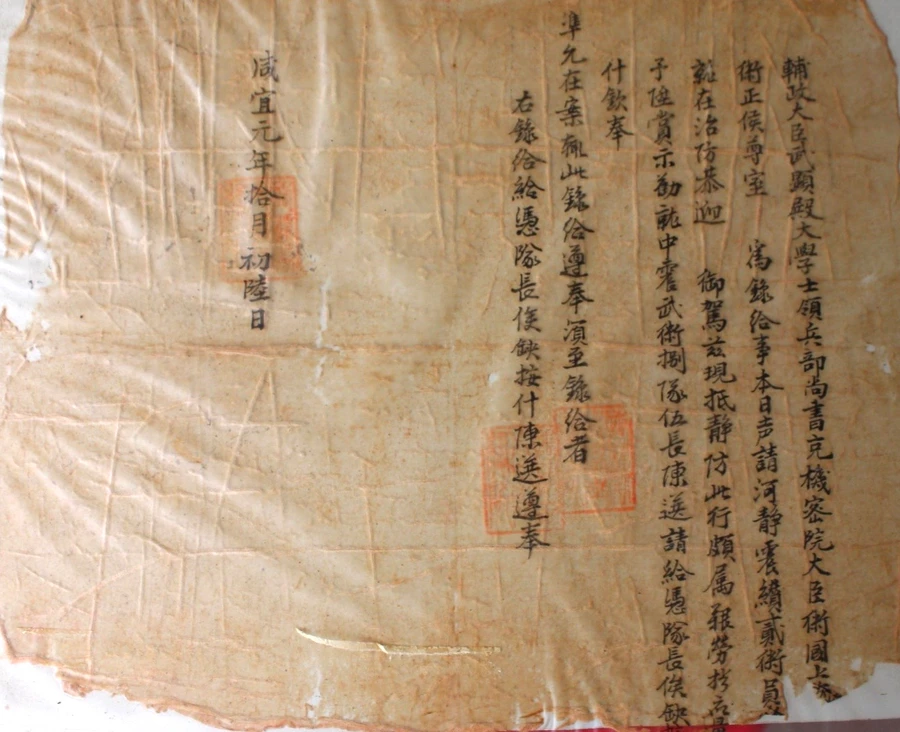 輔政大臣武顯殿大學士領兵部尚書充機密院大臣衛國上將
衛正侯尊室 為錄給事本日声請河靜震續貳衛員
就在治防恭迎 御駕茲現抵靜防此行頗属艱勞
予陞賞示勸就中震武衛捌隊伍長陳送請給憑隊長俟缺
什欽奉
準允在案輒此錄給遵奉須至錄給者
右錄給給憑隊長俟缺按什陳送遵奉
咸宜元年拾月初陸日